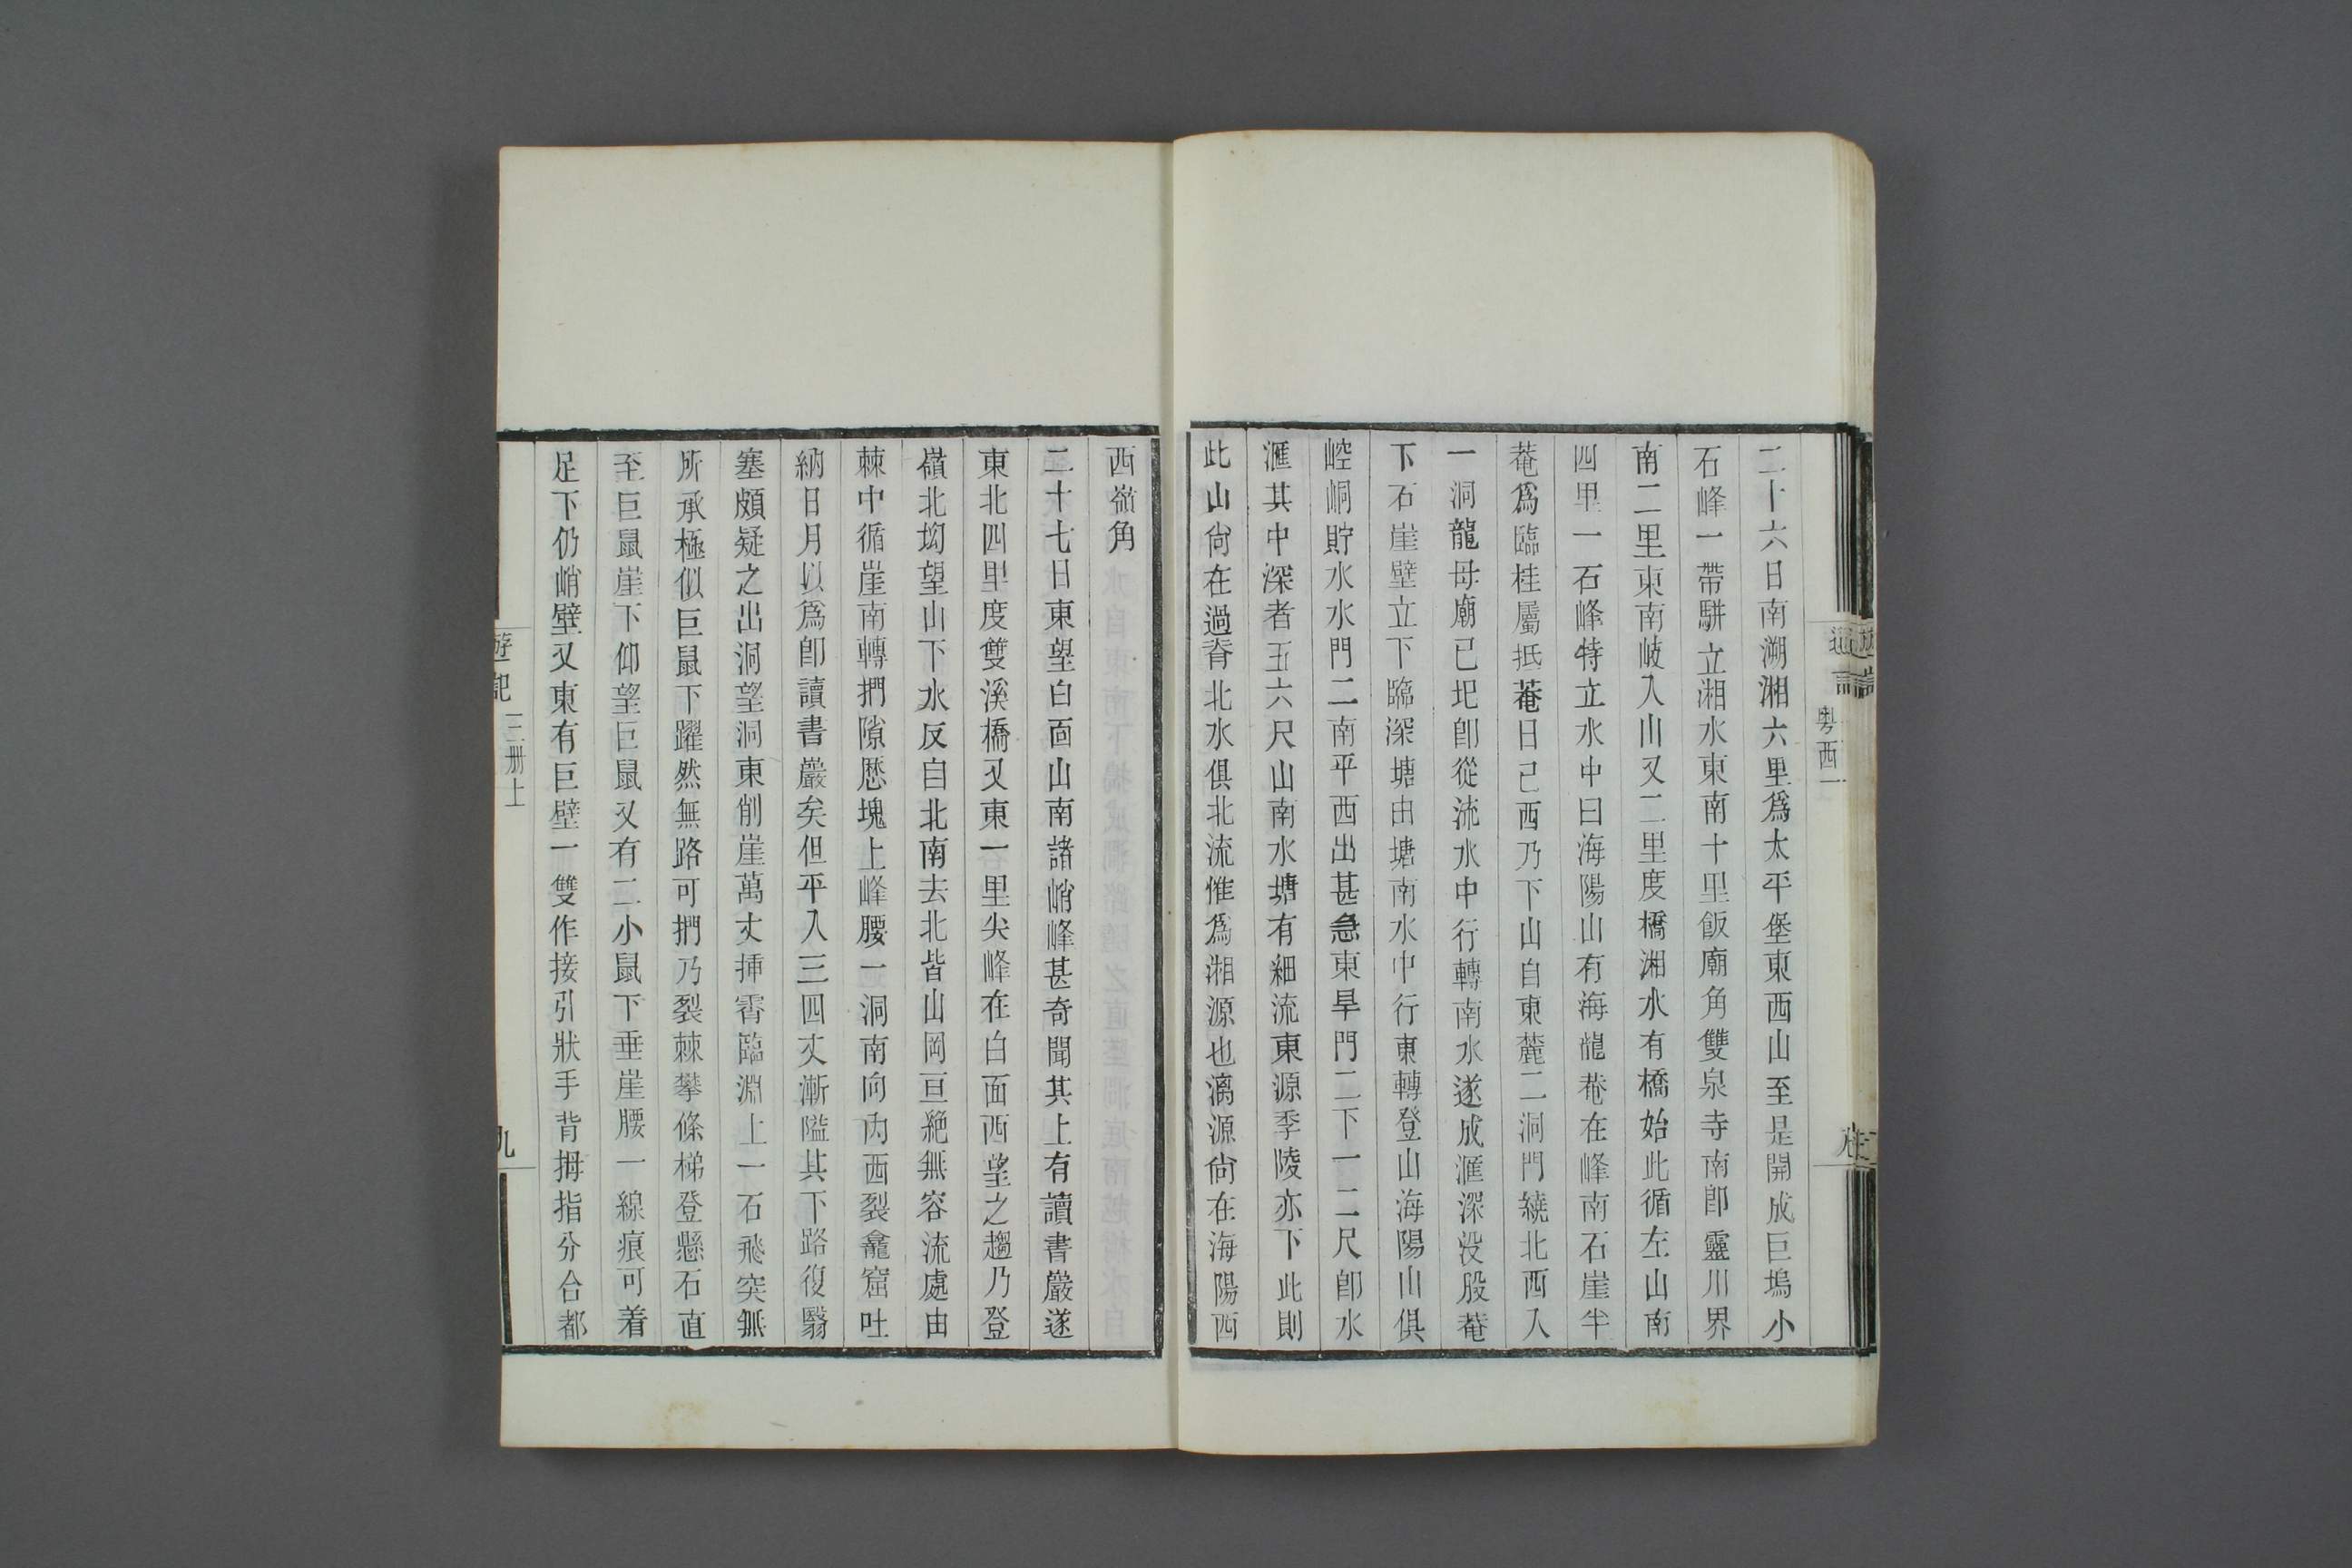 二十六日南溯湘六里爲太平堡東西山至是開成巨塢小
石峰一帶駢立湘水東南十里飯廟角雙泉寺南卽靈川界
南二里東南岐入山又二里度橋湘水有橋始此循左山南
四里一石峰特立水中曰海陽山有海龍菴在峰南石崖半
菴爲臨桂屬抵菴日已西乃下山自東麓二洞門繞北西入
一洞龍母廟已圯卽從流水中行轉南水遂成滙深没股菴
下石崖壁立下臨深塘由塘南水中行東轉登山海陽山俱
崆峒貯水水門二南平西出甚急東旱門二下一二尺卽水
滙其中深者五六尺山南水塘有細流東源季陵亦下此則
此山尙在過脊北水俱北流惟爲湘源也漓源尙在海陽西
西嶺角
二十七日東望白面山南諸峭峰甚奇聞其上有讀書巖遂
東北四里度雙溪橋又東一里尖峰在白面西望之趨乃登
嶺北坳望山下水反自北南去北皆山岡亘絶無容流處由
棘中循崖南轉捫隙歷塊上峰腰一洞南向內西裂龕窟吐
納日月以爲卽讀書巖矣但平入三四丈漸隘其下路復翳
塞頗疑之出洞望洞東削崖萬丈揷霄臨淵上一石飛突無
所承極似巨鼠下躍然無路可捫乃裂棘攀條梯登懸石直
至巨鼠崖下仰望巨鼠又有二小鼠下垂崖腰一線痕可着
足下仍峭壁又東有巨壁一雙作接引狀手背拇指分合都
遊記
三册上
九
粤西一